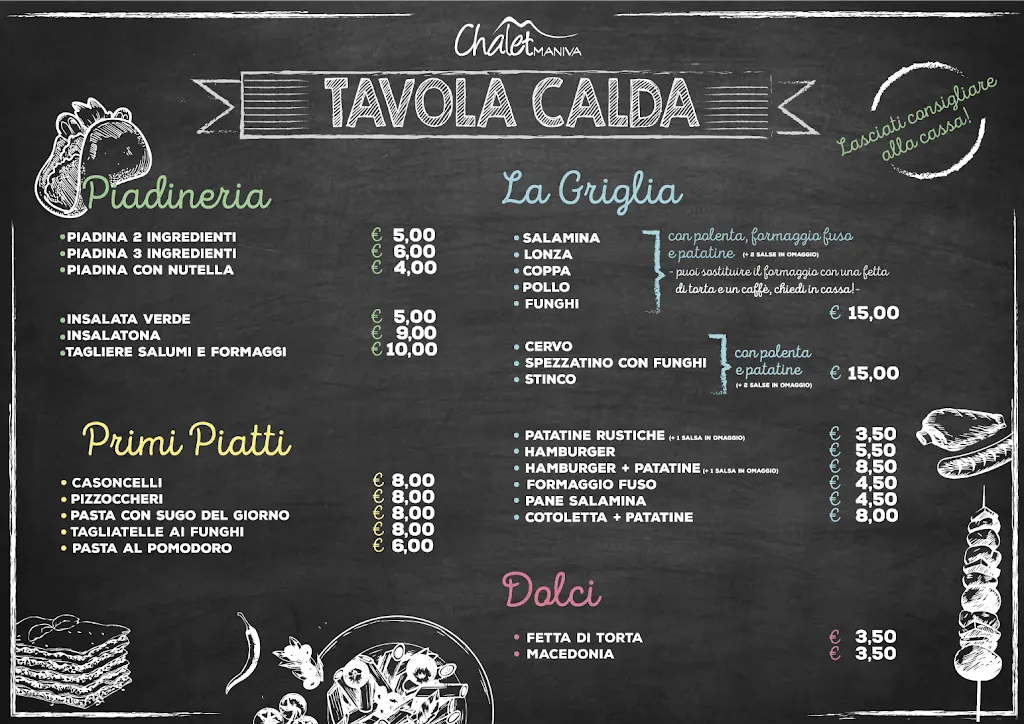 Chalet MANIVA
TAVOLA CALDA
Lasciati consigliare
alla cassa!
Piadineria
PIADINA 2 INGREDIENTI € 5,00
PIADINA 3 INGREDIENTI € 6,00
PIADINA CON NUTELLA € 4,00
INSALATA VERDE € 5,00
INSALATONA € 9,00
TAGLIERE SALUMI E FORMAGGI € 10,00
Primi Piatti
CASONCELLI € 8,00
PIZZOCCHERI € 8,00
PASTA CON SUGO DEL GIORNO € 8,00
TAGLIATELLE AI FUNGHI € 8,00
PASTA AL POMODORO € 6,00
La Griglia
SALAMINA
LONZA
COPPA
POLLO
FUNGHI
con polenta, formaggio fuso
e patatine (+ 2 SALSE IN OMAGGIO)
- puoi sostituire il formaggio con una fetta
di torta e un caffè, chiedi in cassa!-
€ 15,00
CERVO
SPEZZATINO CON FUNGHI
STINCO
con polenta
e patatine
(+ 2 SALSE IN OMAGGIO)
€ 15,00
PATATINE RUSTICHE (+ 1 SALSA IN OMAGGIO) € 3,50
HAMBURGER € 5,50
HAMBURGER + PATATINE (+ 1 SALSA IN OMAGGIO) € 8,50
FORMAGGIO FUSO € 4,50
PANE SALAMINA € 4,50
COTOLETTA + PATATINE € 8,00
Dolci
FETTA DI TORTA € 3,50
MACEDONIA € 3,50